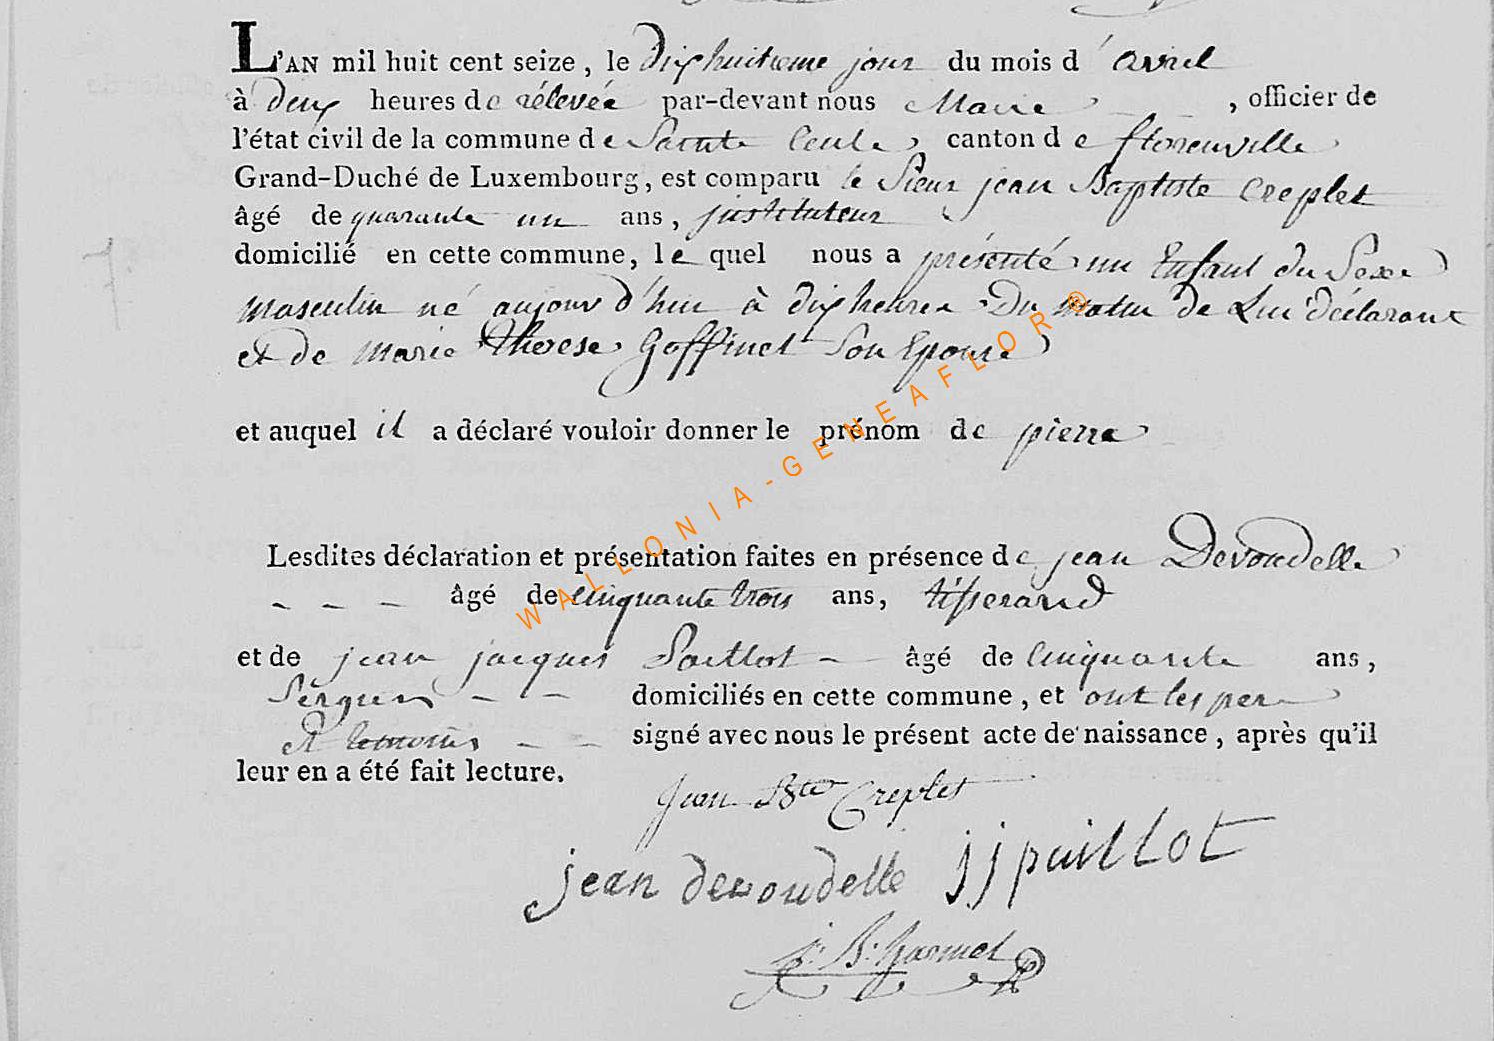 L'AN mil huit cent seize, le dixhuitieme jour du mois d'avril
à deux heures de rélevée par-devant nous Maire, officier de
l'état civil de la commune de Sainte Cecile, canton de florenville
Grand-Duché de Luxembourg, est comparu le Sieur jean Baptiste Creplet
âgé de quarante un ans, justituteur
domicilié en cette commune, le quel nous a présenté un Enfant du Sexe
masculin né aujourd'hui à dix heures Du matin de Lui déclarant
et de marie therese Goffinet Son Epouse
et auquel il a déclaré vouloir donner le prénom de pierre
Lesdites déclaration et présentation faites en présence de jean Devoudelle
- - - âgé de cinquante trois ans, tisserand
et de jean jacques Paillot - âgé de Cinquante ans,
- - domiciliés en cette commune, et ont les pere
Et temoins - - signé avec nous le présent acte de naissance, après qu'il
leur en a été fait lecture.
Jean Bte Creplet
jean devoudelle jjpaillot
WALLONIA-GENEAFLOR®